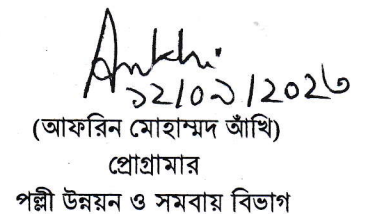 Ankhi
১২/০৯/২০২৩
(আফরিন মোহাম্মদ আঁখি)
প্রোগ্রামার
পল্লী উন্নয়ন ও সমবায় বিভাগ